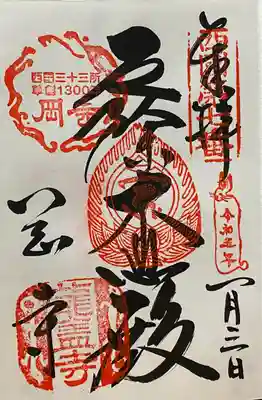 奉拝
令和五年
一月二日
大悲殿
西国三十三所
草創1300年
岡寺
岡寺
龍蓋寺